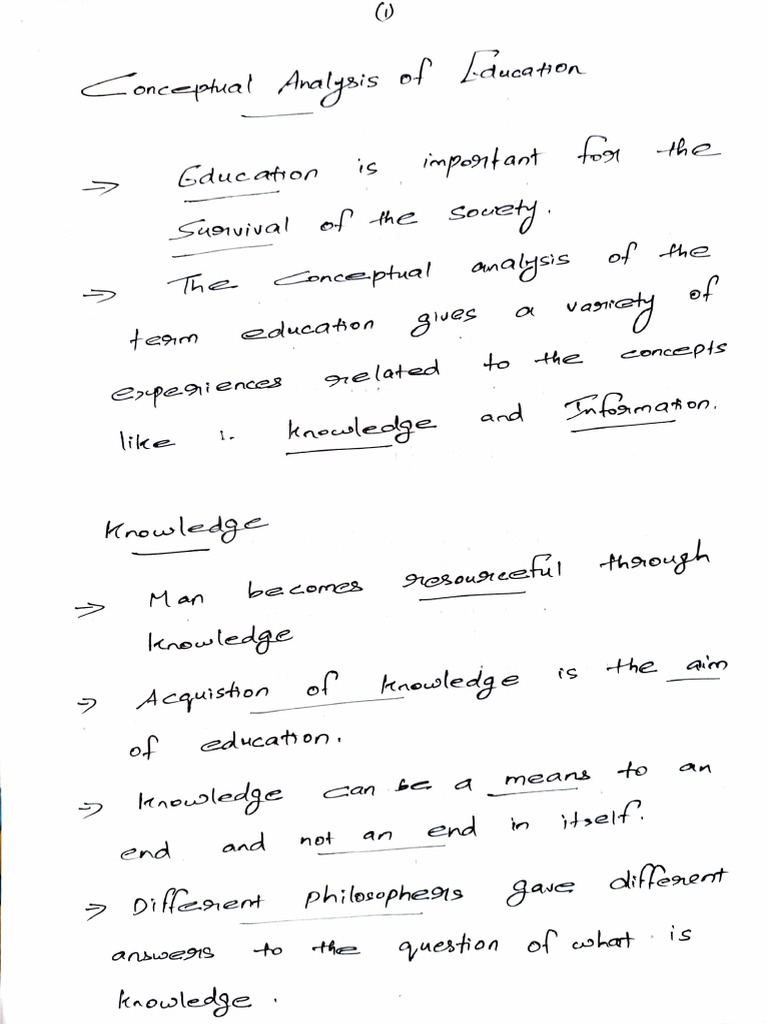 (1)
Conceptual Analysis of Education
⇒ Education is important for the
Survival of the society.
⇒ The conceptual analysis of the
term education gives a variety of
experiences related to the concepts
like :- knowledge and Information.
Knowledge
⇒ Man becomes resourceful through
knowledge
⇒ Acquistion of knowledge is the aim
of education.
⇒ knowledge can be a means to an
end and not an end in itself.
⇒ Different philosophers gave different
answers to the question of what is
knowledge.